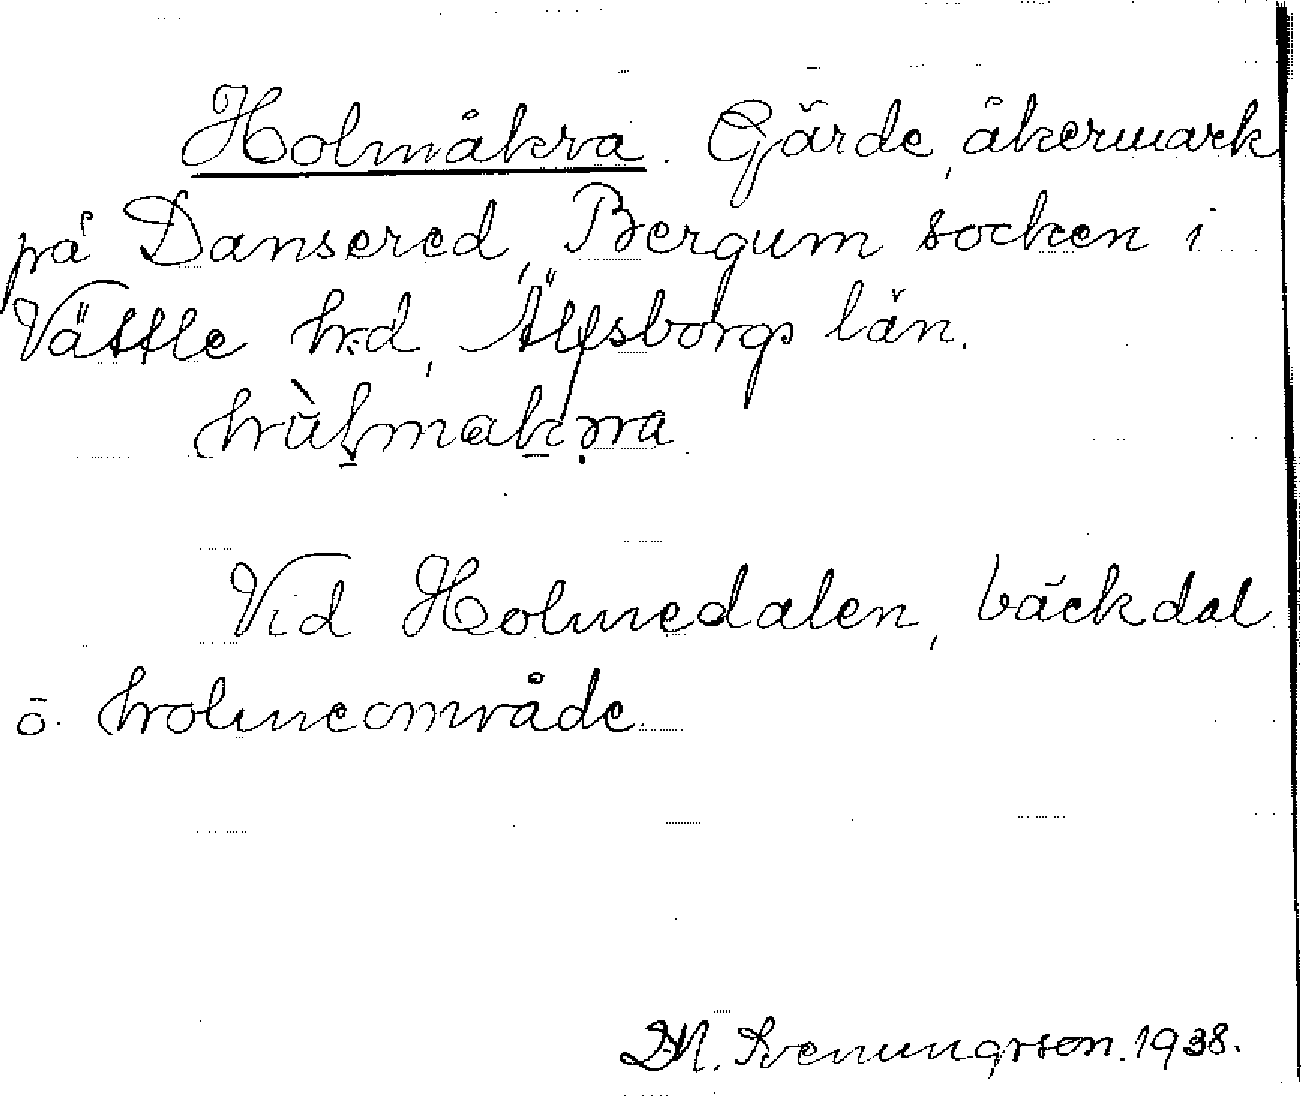 Holmåkra. Gärde, åkermark
på Dansered, Bergum socken i
Vättle hd, Älfsborgs län.
hùlmakrra

Vid Holmedalen, bäckdal
o. holmeområde.

M. Svenungsson. 1938.